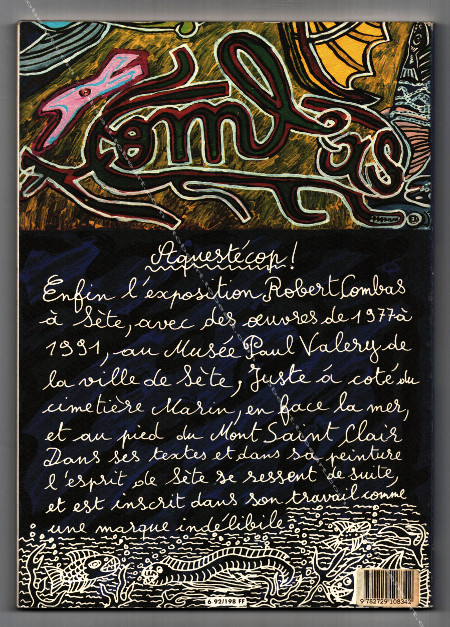 Combas
Aquestécop!
Enfin l'exposition Robert Combas
à Sète, avec des œuvres de 1977 à
1991, au Musée Paul Valery de
la ville de Sète, Juste á coté du
cimetière Marin, en face la mer,
et au pied du Mont Saint Clair
Dans ses textes et dans sa peinture
l'esprit de Sète se ressent de suite,
et est inscrit dans son travail comme
une marque indélibile
6 92/198 FF
9 782729 108342